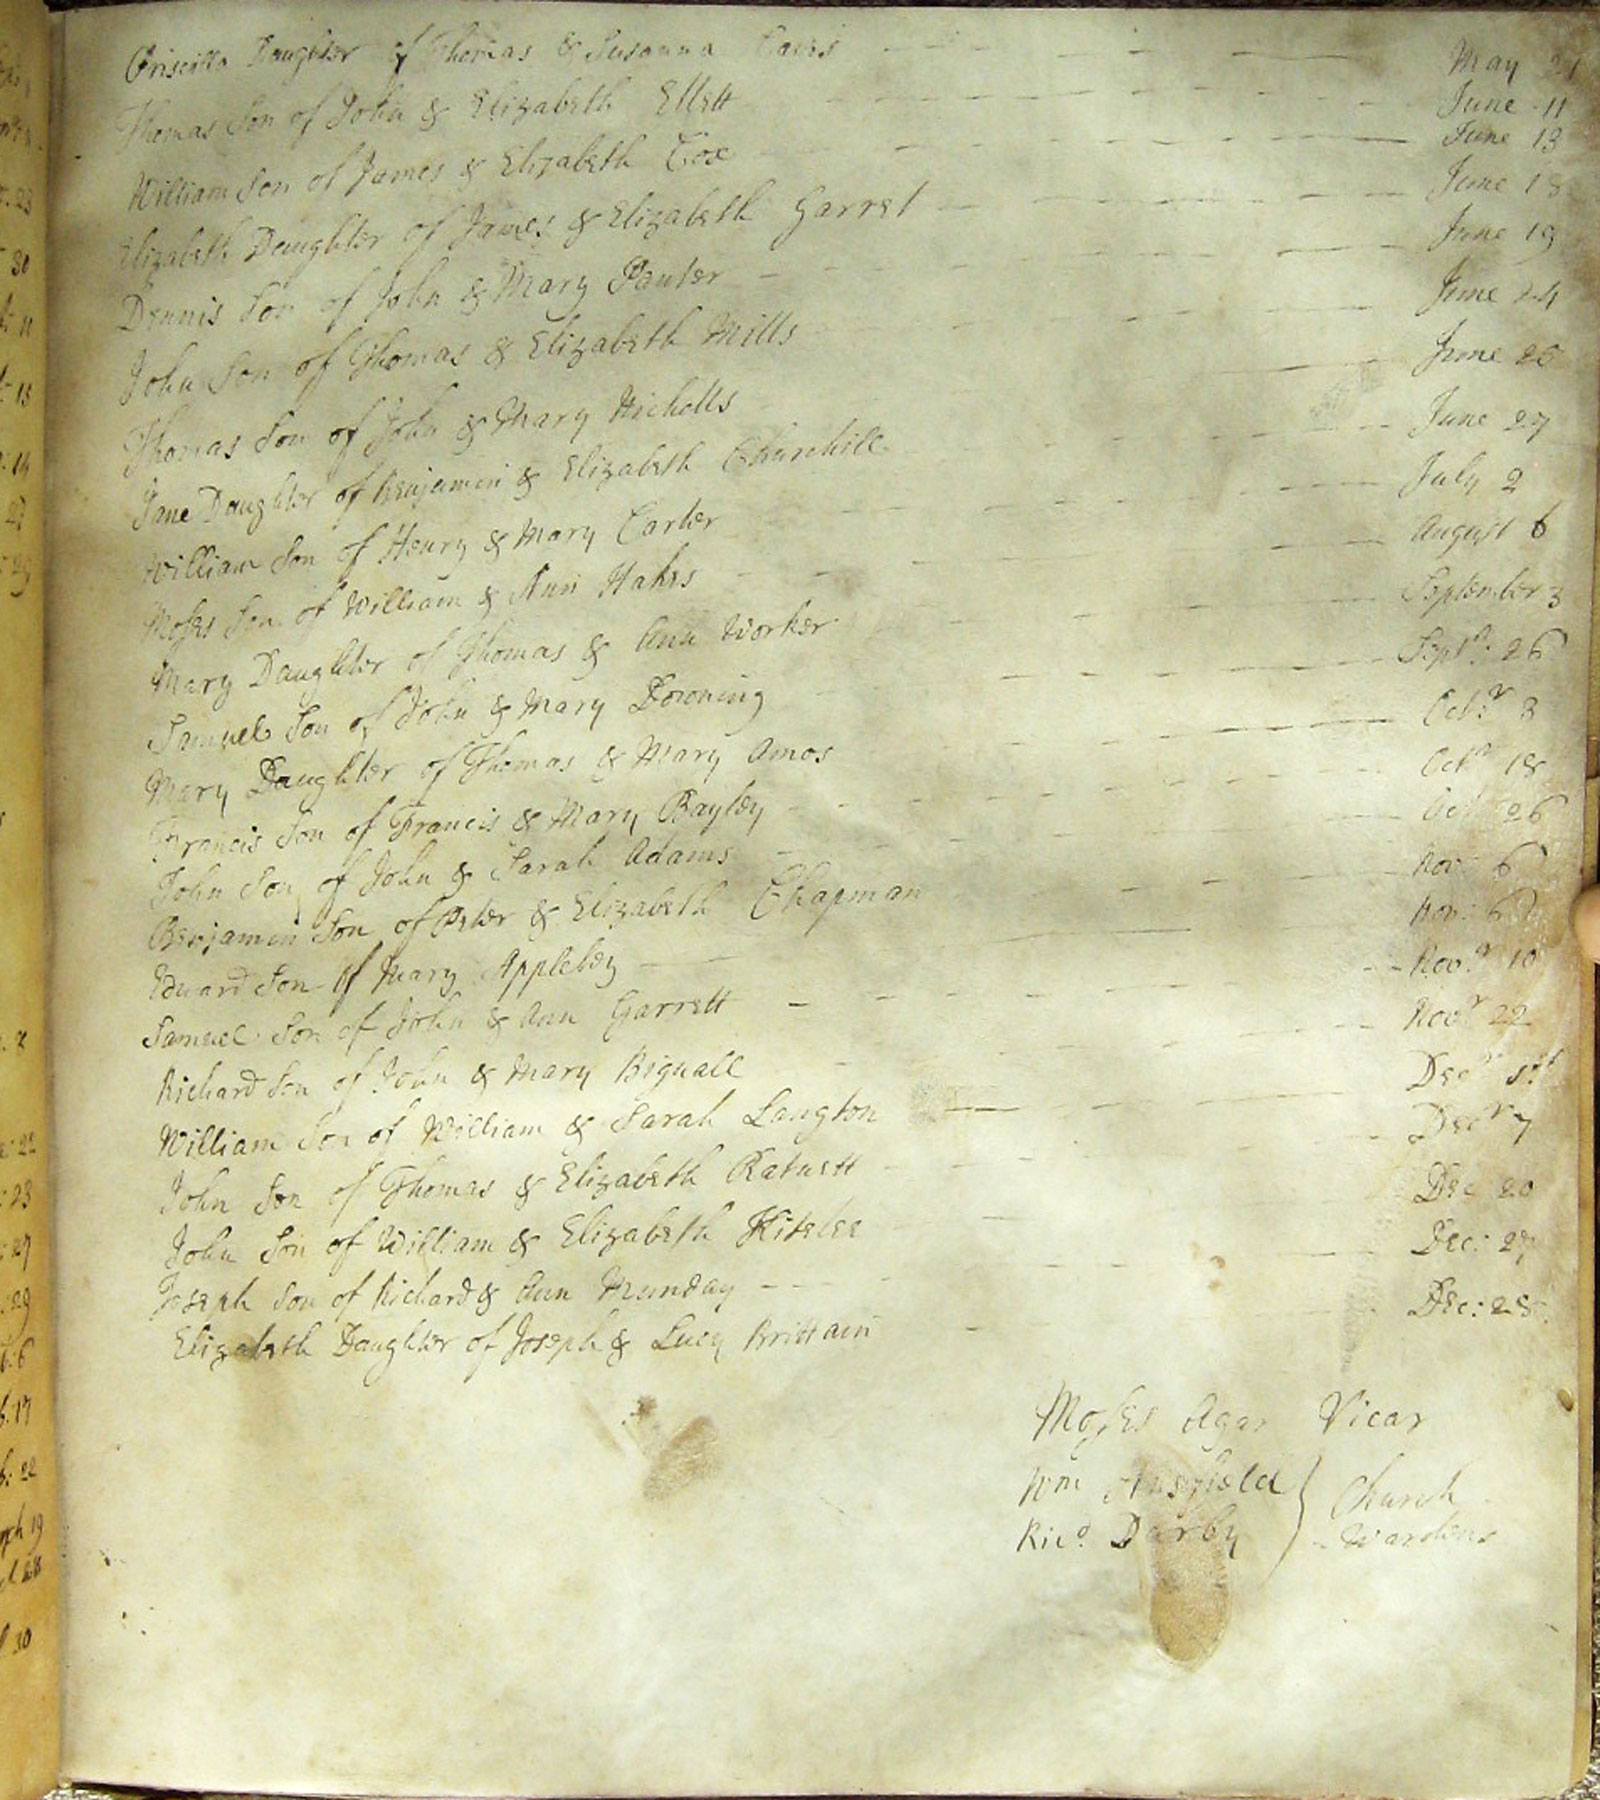 Priscilla Daughter of Thomas & Susanna May 21
Thomas Son of John & Elizabeth Ellett June 11
William Son of James & Elizabeth Cox June 13
Elizabeth Daughter of James & Elizabeth Garret June 18
Dennis Son of John & Mary Panter June 19
John Son of Thomas & Elizabeth Mills June 24
Thomas Son of John & Mary Nicholls June 26
Jane Daughter of Benjamin & Elizabeth Churchill June 27
William Son of Henry & Mary Carter July 2
Moses Son of William & Ann Hakes August 6
Mary Daughter of Thomas & Ann Worker September 3
Samuel Son of John & Mary Downing Septr: 26
Mary Daughter of Thomas & Mary Amos Octr: 8
Francis Son of Francis & Mary Bayley Octr 18
John Son of John & Sarah Adams Octr 26
Benjamin Son of Peter & Elizabeth Chapman Nov: 6
Edward Son of Mary Appleby Nov: 6
Samuel Son of John & Ann Garrett Novr 10
Richard Son of John & Mary Bignall Novr 22
William Son of William & Sarah Langton Decr 1st
John Son of Thomas & Elizabeth Ratnett Decr 7
John Son of William & Elizabeth Kitelee Dec 20
Joseph Son of Richard & Ann Munday Dec: 27
Elizabeth Daughter of Joseph & Lucy Brittain Dec: 28
Moses Agar Vicar
Wm Church
Ricd. Darby Wardens